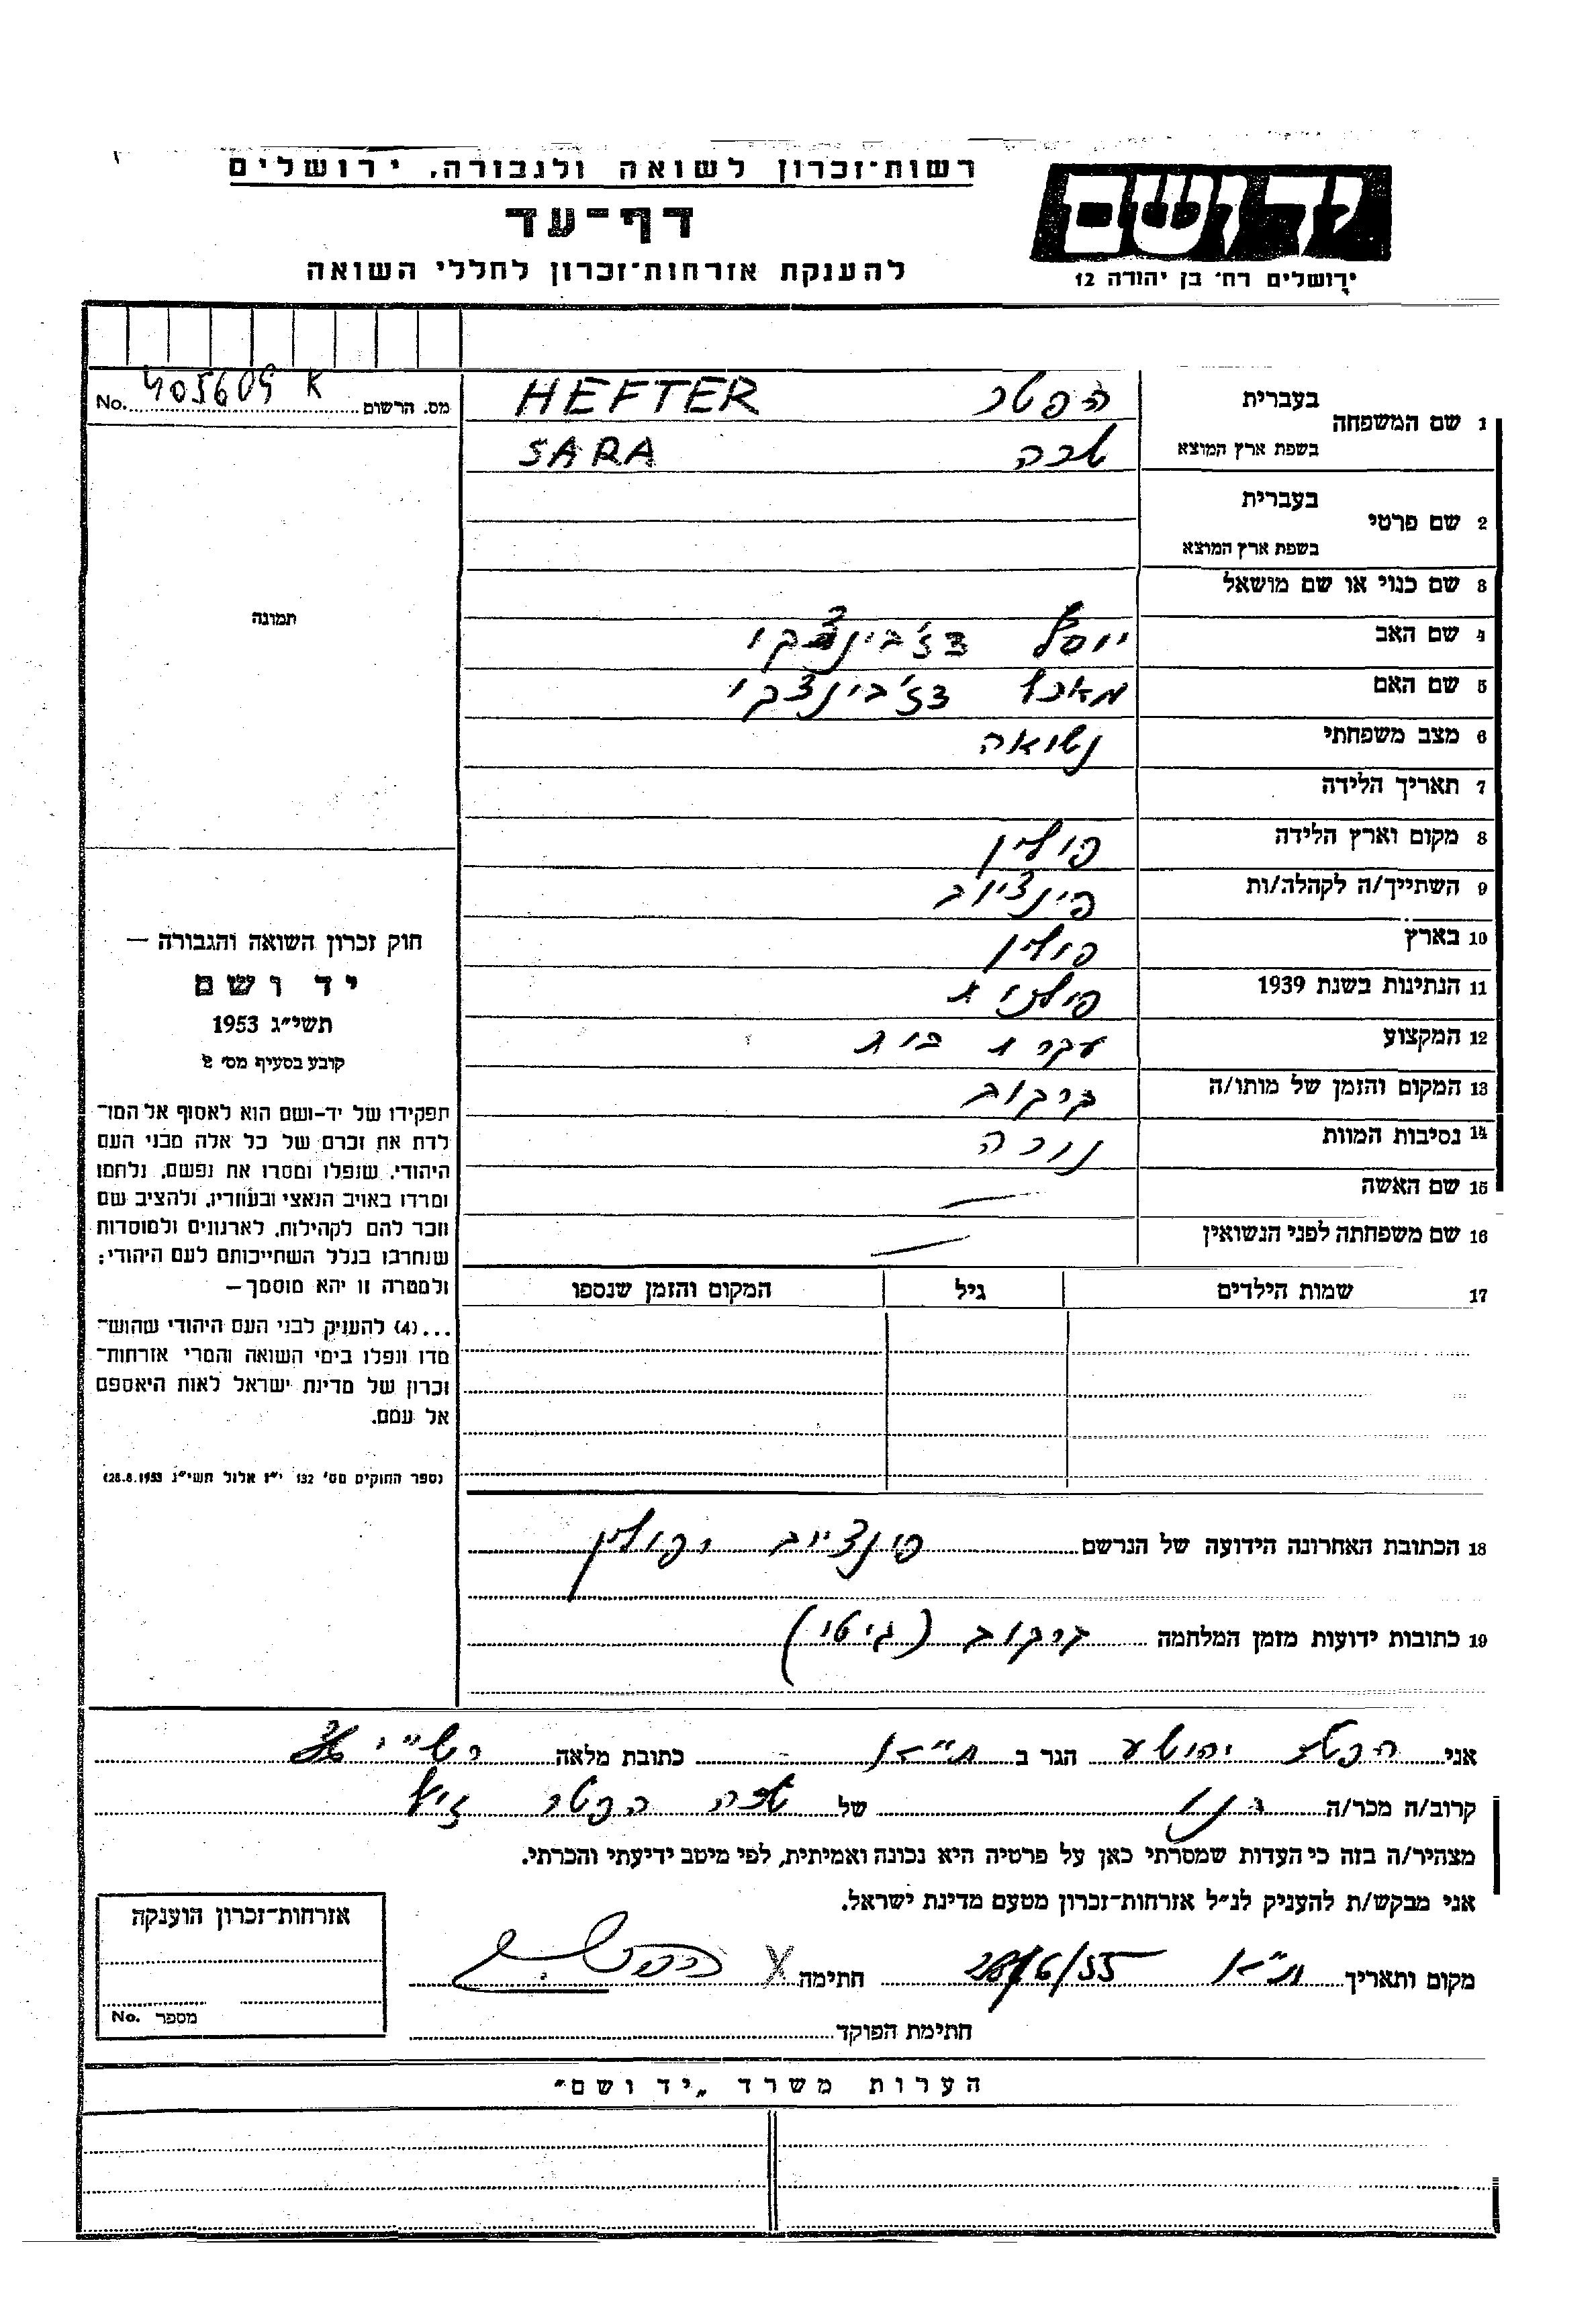 רשות־זכרון לשואה ולגבורה, ירושלים
דף־עד
להענקת אזרחות־זכרון לחללי השואה
יד ושם
ירושלים רח׳ בן יהודה 12
No. 405609 K מס. הרשום
1 שם המשפחה בעברית הפטר HEFTER
בשפת ארץ המוצא שרה SARA
2 שם פרטי בעברית
בשפת ארץ המוצא
3 שם כנוי או שם מושאל
4 שם האב יוסף
5 שם האם
6 מצב משפחתי נשואה
7 תאריך הלידה
8 מקום וארץ הלידה פולין
9 השתייך/ה לקהלה/ות פינצ׳וב
10 בארץ פולין
11 הנתינות בשנת 1939 פולנית
12 המקצוע עקרת בית
13 המקום והזמן של מותו/ה קרקוב
14 נסיבות המוות נורה
15 שם האשה
16 שם משפחתה לפני הנשואין
17 שמות הילדים גיל המקום והזמן שנספו
תמונה
חוק זכרון השואה והגבורה —
יד ושם
תשי״ג 1953
קובע בסעיף מס׳ 2
תפקידו של יד-ושם הוא לאסוף אל המו־
לדת את זכרם של כל אלה מבני העם
היהודי, שנפלו ומסרו את נפשם, נלחמו
ומרדו באויב הנאצי ובעוזריו, ולהציב שם
וזכר להם לקהילות, לארגונים ולמוסדות
שנחרבו בגלל השתייכותם לעם היהודי;
ולמטרה זו יהא מוסמך —
...(4) להעניק לבני העם היהודי שהוש־
מדו ונפלו בימי השואה והמרי אזרחות־
זכרון של מדינת ישראל לאות היאספם
אל עמם.
(ספר החוקים מס׳ 132 י״ז אלול תשי״ג 28.8.1953)
18 הכתובת האחרונה הידועה של הנרשם פינצ׳וב פולין
19 כתובות ידועות מזמן המלחמה קרקוב (גיטו)
אני הפטר יהושע הגר ב ת״א כתובת מלאה רש״י
קרוב/ה מכר/ה בנו של שרה הפטר ז״ל
מצהיר/ה בזה כי העדות שמסרתי כאן על פרטיה היא נכונה ואמיתית, לפי מיטב ידיעתי והכרתי.
אני מבקש/ת להעניק לנ״ל אזרחות־זכרון מטעם מדינת ישראל.
מקום ותאריך ת״א 28/6/55 חתימה X
חתימת הפוקד
אזרחות־זכרון הוענקה
No. מספר
הערות משרד „יד ושם״